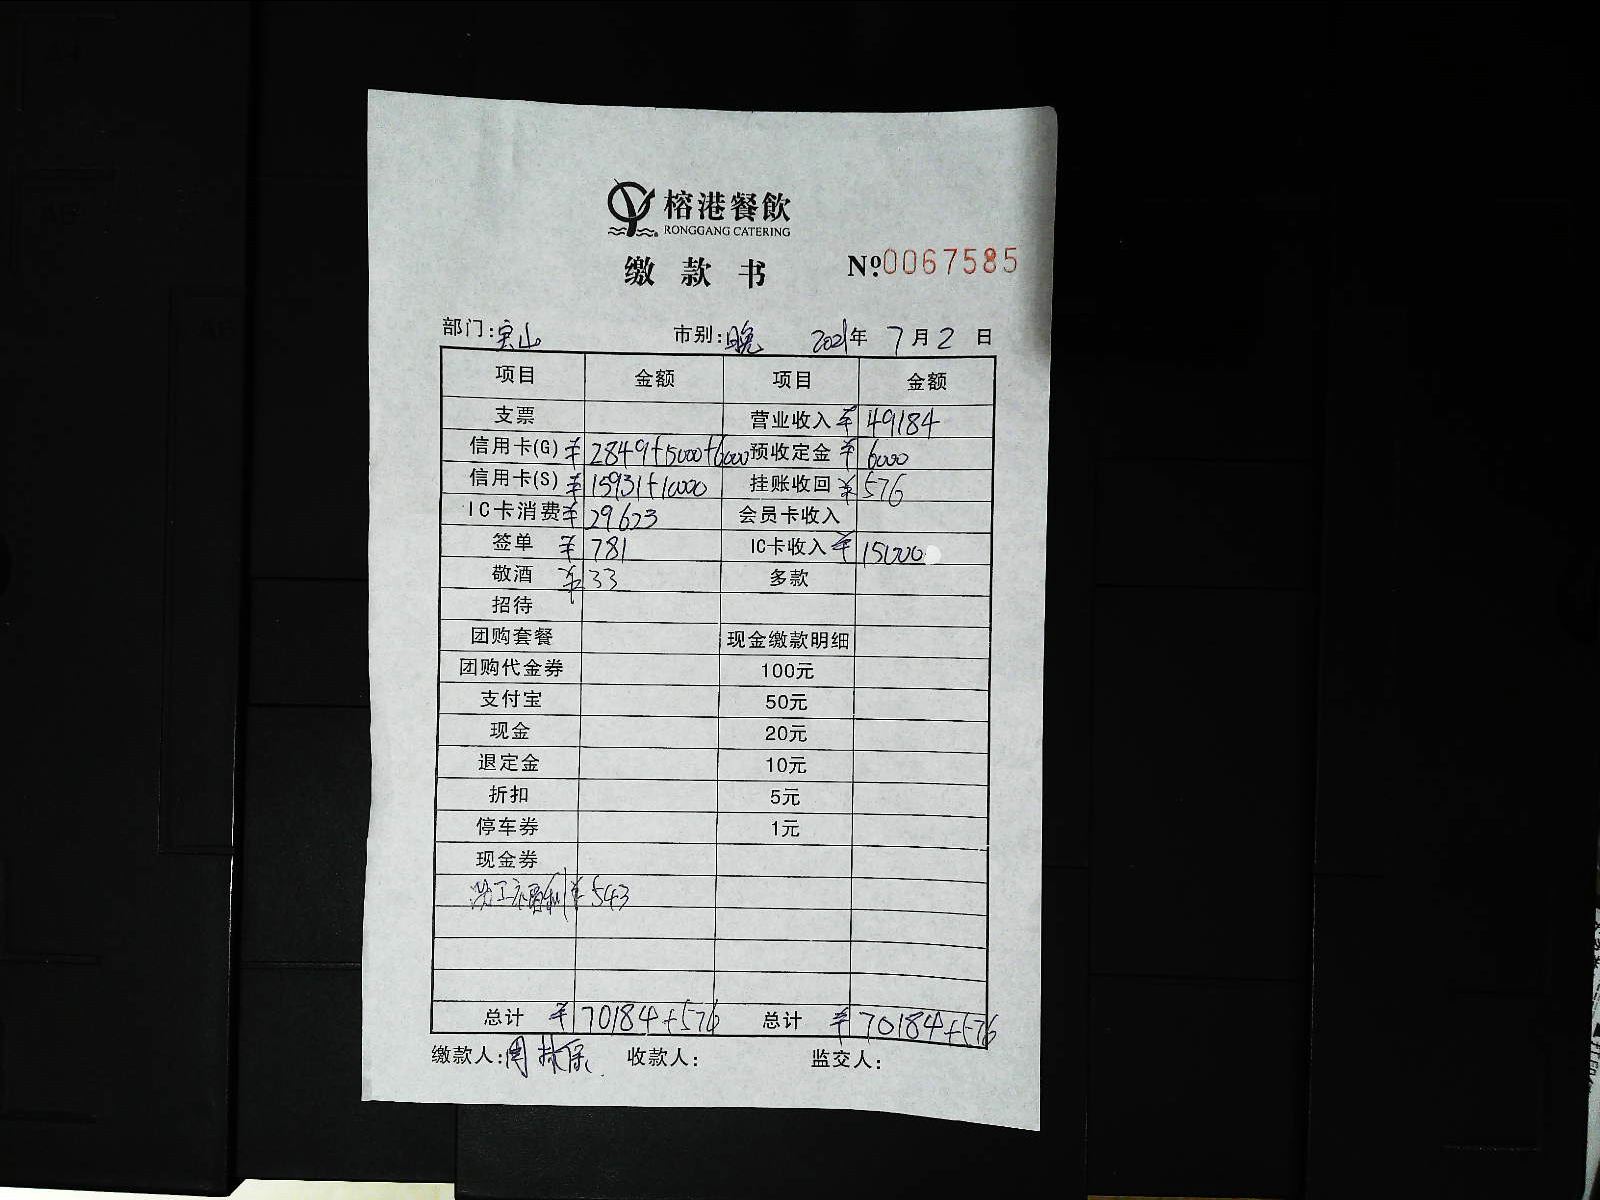 榕港餐飲
RONGGANG CATERING
缴款书 №0067585
部门:宝山 市别:晚 2021年7月2日
项目 金额 项目 金额
支票 营业收入 ¥49184
信用卡(G) ¥2849+5000+6000 预收定金 ¥6000
信用卡(S) ¥15931+10000 挂账收回 ¥576
IC卡消费 ¥29623 会员卡收入
签单 ¥781 IC卡收入 ¥15000
敬酒 ¥33 多款
招待
团购套餐 现金缴款明细
团购代金券 100元
支付宝 50元
现金 20元
退定金 10元
折扣 5元
停车券 1元
现金券
员工福利 ¥543
总计 ¥70184+576 总计 ¥70184+576
缴款人:周 收款人: 监交人: